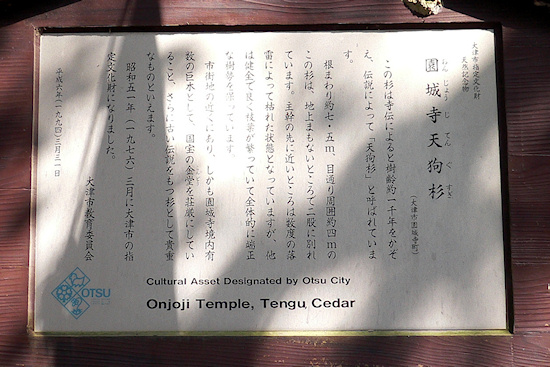 大津市指定文化財
天然記念物
園城寺天狗杉
おんじょうじてんぐすぎ
(大津市園城寺町)
この杉は寺伝によると樹齢約一千年をかぞ
え、伝説によって「天狗杉」と呼ばれていま
す。
根まわり約七・五m、目通り周囲約四mの
この杉は、地上まもないところで二股に別れ
ています。主幹の先に近いところは数度の落
雷によって枯れた状態となっていますが、他
は健全で良く枝葉が繁っていて全体的に端正
な樹勢を保っています。
市街地の近くにあり、しかも園城寺境内有
数の巨木として、国宝の金堂を荘厳にしてい
ること、さらに古い伝説をもつ杉として貴重
なものといえます。
昭和五一年(一九七六)三月に大津市の指
定文化財になりました。
平成六年(一九九四)三月三一日
大津市教育委員会
Cultural Asset Designated by Otsu City
Onjoji Temple, Tengu Cedar
OTSU